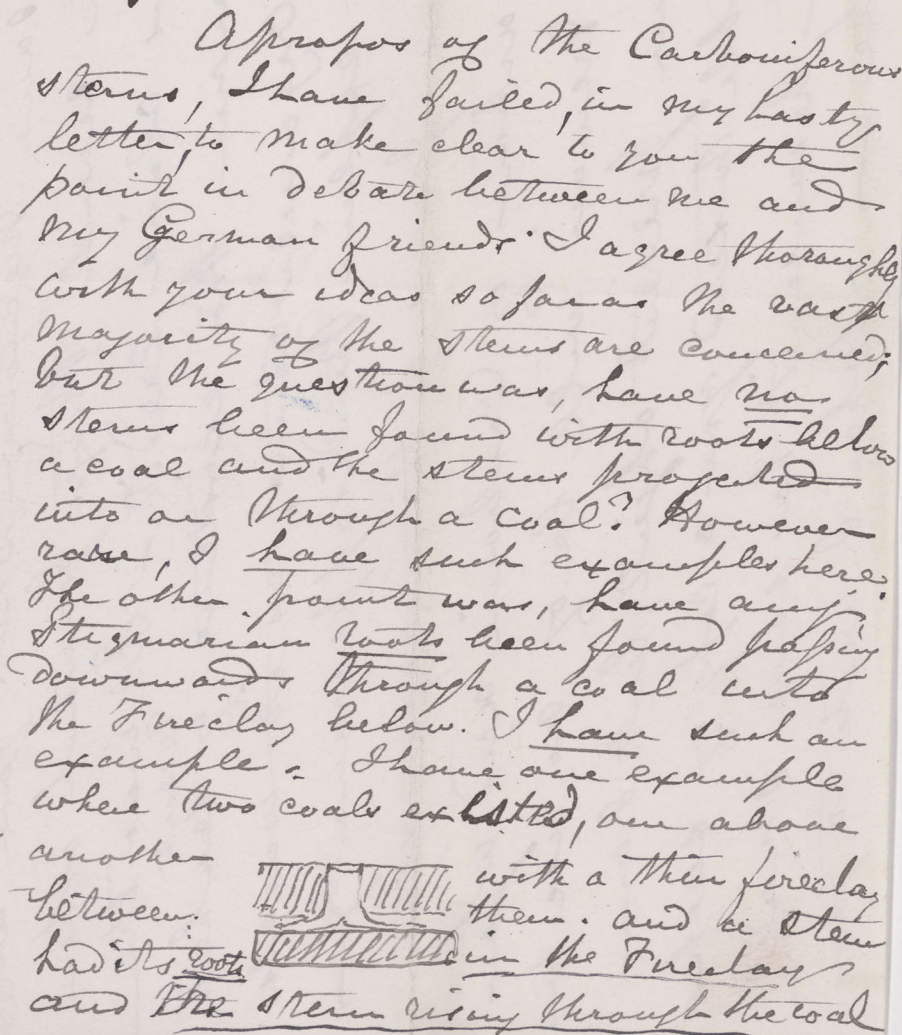 Apropos of the Carboniferous
stems, I have failed, in my hasty
letter, to make clear to you the
point in debate between me and
my German friends. I agree thoroughly
with your ideas so far as the vast
majority of the stems are concerned;
but the question was, have no
stems been found with roots below
a coal and the stems projected
into or through a coal? However
rare, I have such examples here.
The other point was, have any
Stigmarian roots been found passing
downwards through a coal into
the Fireclay below. I have such an
example. I have one example
where two coals existed, one above
another with a thin fireclay
between them. and a stem
had its roots in the Fireclay
and the stem rising through the coal